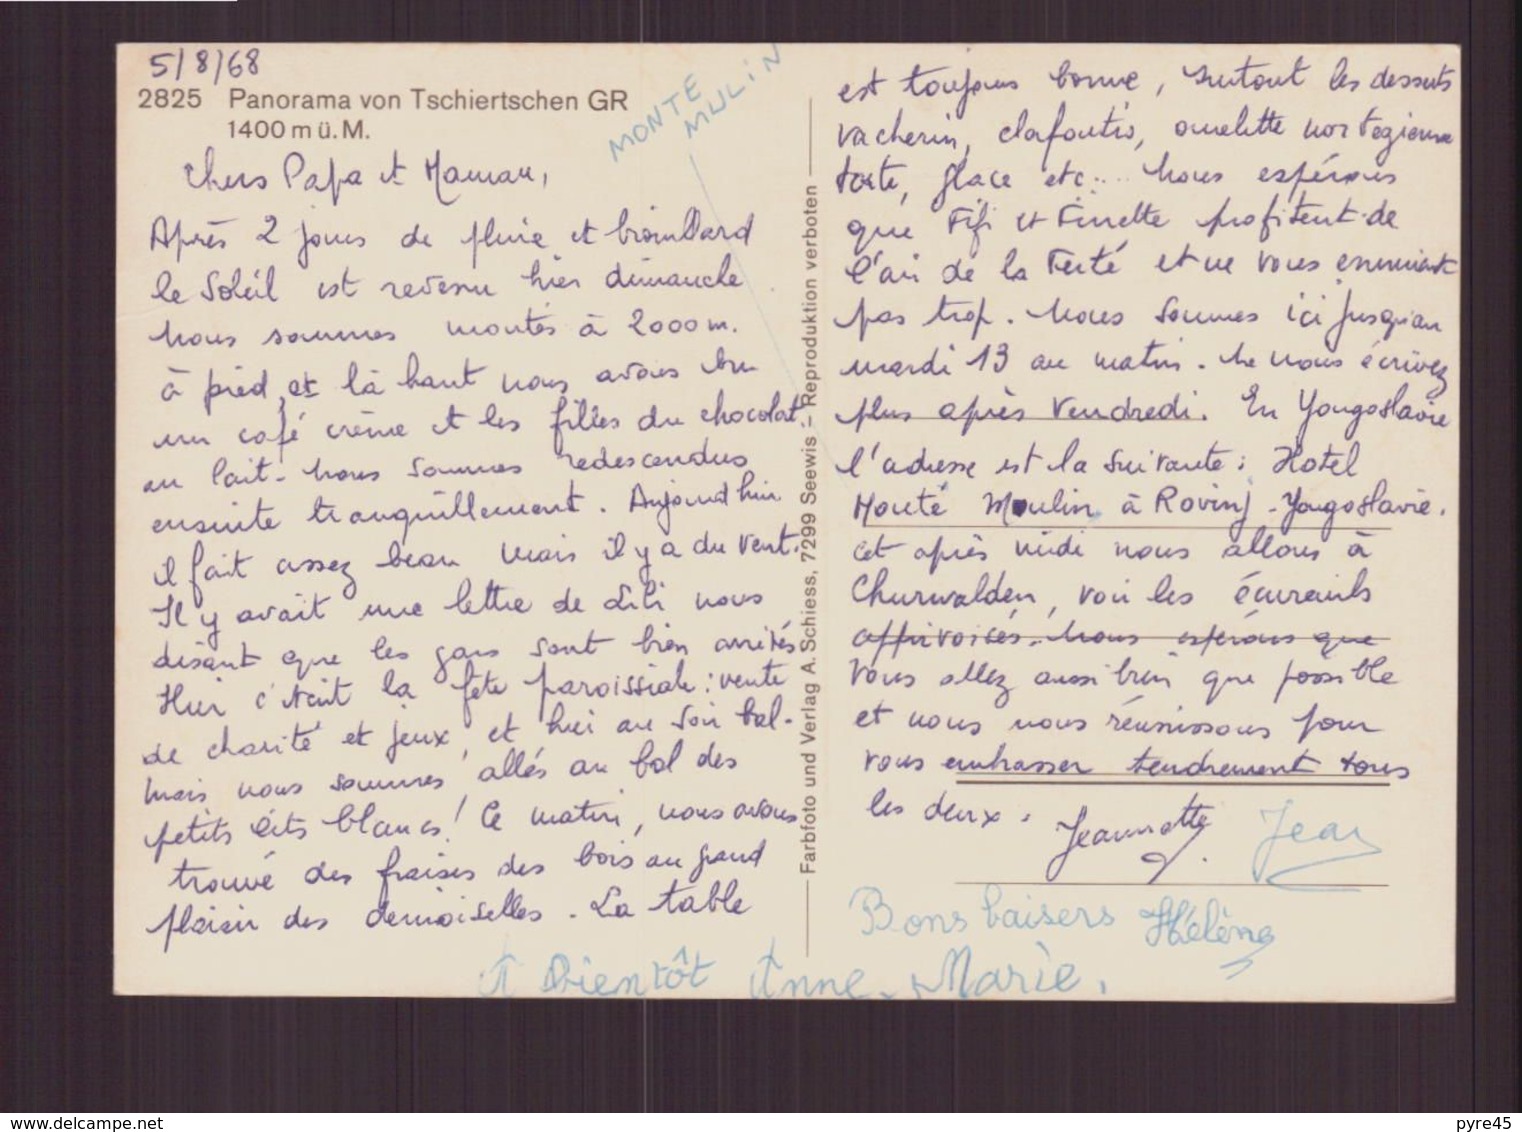 5/8/68
2825 Panorama von Tschiertschen GR
1400 m ü. M.
MONTE
MULIN
Chers Papa et Maman,
Après 2 jours de pluie et brouillard
le Soleil est revenu hier dimanche
nous sommes montés à 2000 m.
à pied, et là haut nous avons bu
un café crème et les filles du chocolat
au lait. Nous sommes redescendus
ensuite tranquillement. Aujourd'hui
il fait assez beau mais il y a du vent.
Il y avait une lettre de Lili nous
disant que les gars sont bien arrivés
Hier c'était la fête paroissiale : vente
de charité et jeux, et hier au soir bal.
mais nous sommes allés au bal des
petits lits blancs! Ce matin, nous avons
trouvé des fraises des bois au grand
plaisir des demoiselles. La table
Farbfoto und Verlag A. Schiess, 7299 Seewis – Reproduktion verboten
est toujours bonne, surtout les desserts
vacherin, clafoutis, omelette norvégienne
tarte, glace etc.... Nous espérons
que Fifi et Finette profitent de
l'air de la Ferté et ne vous ennuient
pas trop. Nous sommes ici jusqu'au
mardi 13 au matin. Ne nous écrivez
plus après Vendredi. En Yougoslavie
l'adresse est la suivante : Hotel
Monté Moulin à Rovinj - Yougoslavie.
Cet après midi nous allons à
Churwalden, voir les écureuils
apprivoisés. Nous espérons que
vous allez aussi bien que possible
et nous nous réunissons pour
vous embrasser tendrement tous
les deux.
Jeannette Jean
Bons baisers Hélène
A Bientôt Anne-Marie.
delcampe.net
pyre45